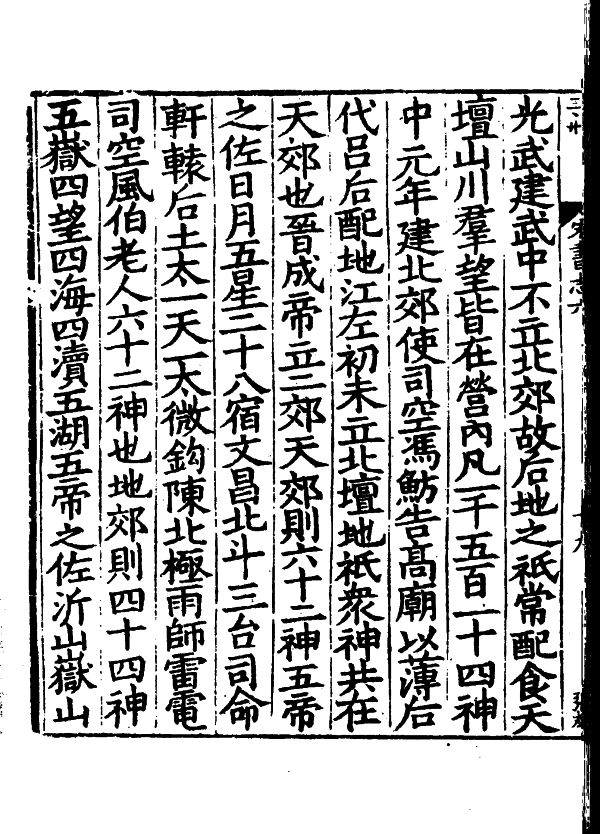 光武建武中不立北郊故后地之祇常配食天
壇山川羣望皆在營內凡一千五百一十四神
中元年建北郊使司空馮魴告高廟以薄后
代吕后配地江左初未立北壇地祇衆神共在
天郊也晉成帝立二郊天郊則六十二神五帝
之佐日月五星二十八宿文昌北斗三台司命
軒轅后土太一天一太微鈎陳北極雨師雷電
司空風伯老人六十二神也地郊則四十四神
五嶽四望四海四瀆五湖五帝之佐沂山嶽山